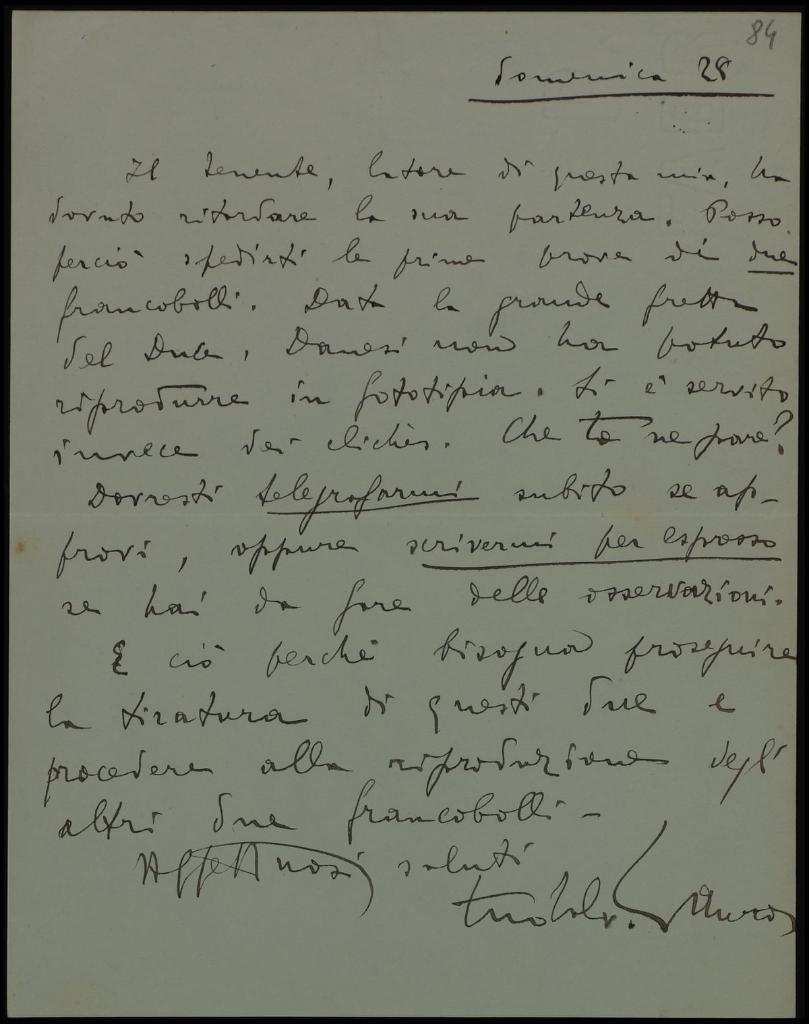 84
domenica 28
Il tenente, latore di questa mia, ha
dovuto ritardare la sua partenza. Posso
perciò spedirti le prime prove di due
francobolli. Data la grande fretta
del Duce, Danesi non ha potuto
riprodurre in fototipia. Si è servito
invece dei clichès. Che te ne pare?
Dovresti telegrafarmi subito se ap-
provi, oppure scrivermi per espresso
se hai da fare delle osservazioni.
E ciò perchè bisogna proseguire
la tiratura di questi due e
procedere alla riproduzione degli
altri due francobolli -
Affettuosi saluti
tuo